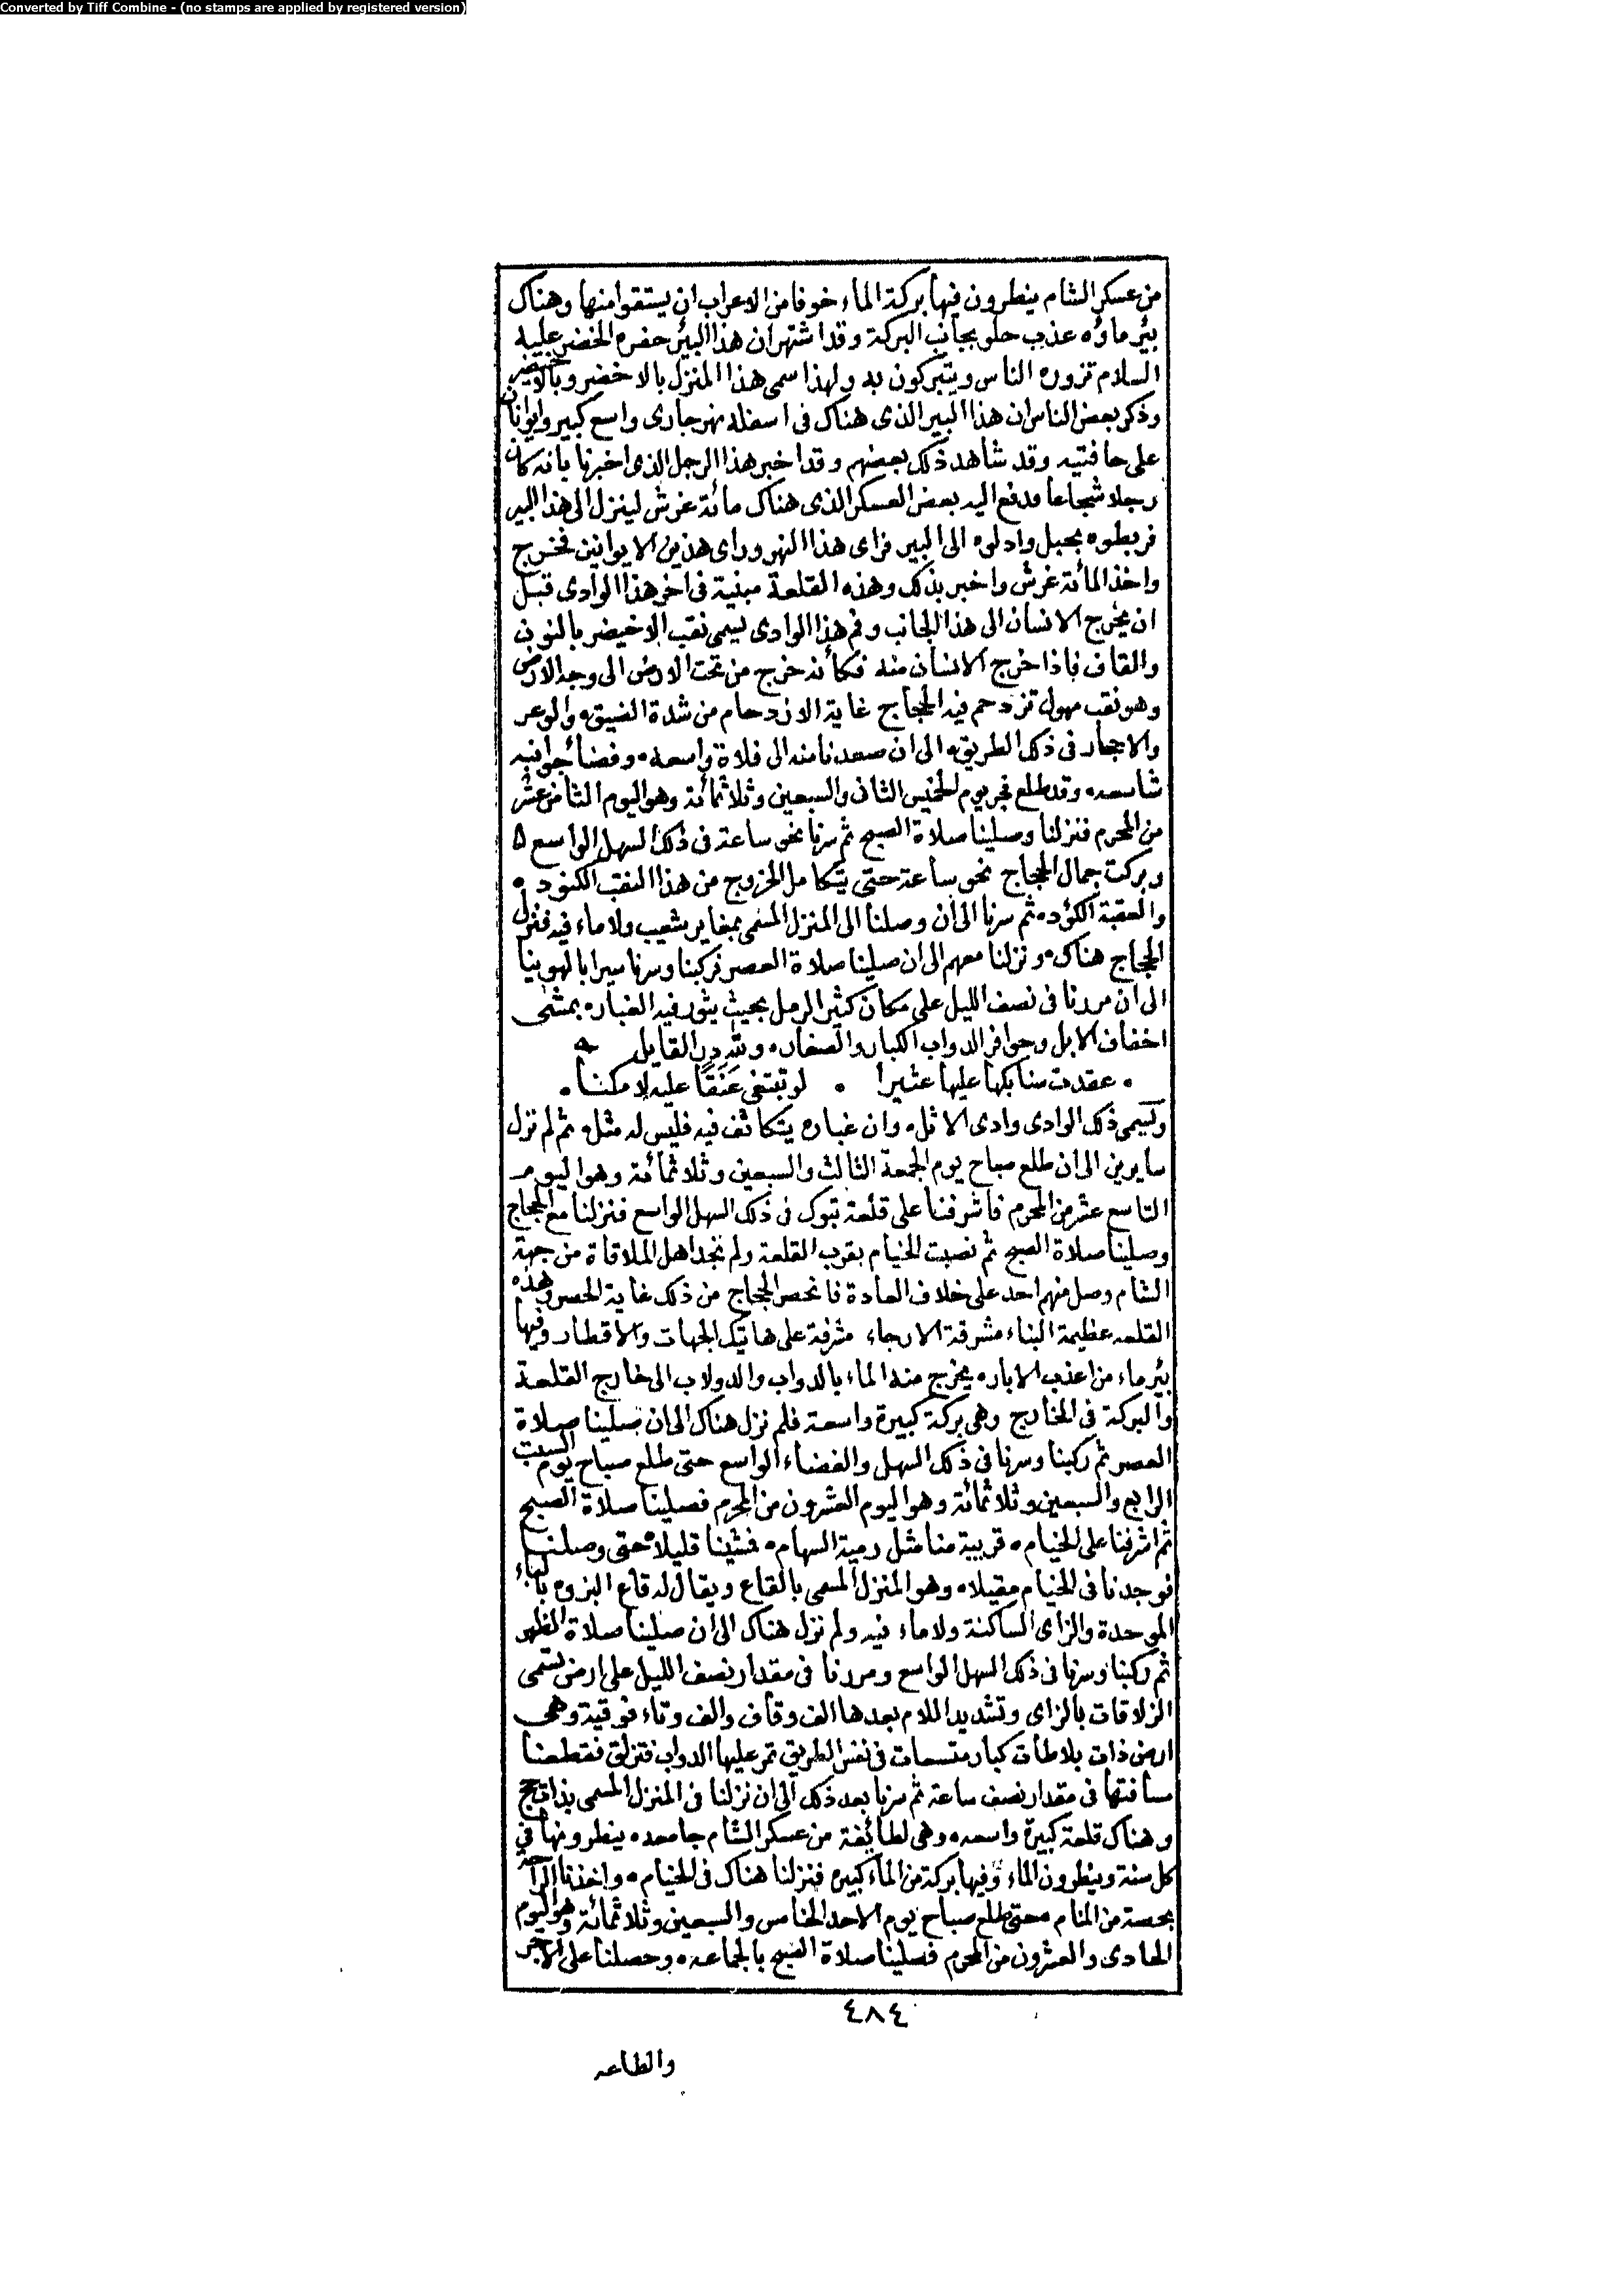 Converted by Tiff Combine - (no stamps are applied by registered version)
من عسكر الشام ينطرون فيها بركة الماء خوفا من الاعراب ان يستقوا منها وهناك
بئر ماؤه عذب حلو بجانب البركة وقد اشتهر ان هذا البئر حفره الخضر عليه
السلام تزوره الناس ويتبركون به ولهذا سمى هذا المنزل بالاخضر وبالاخيضر
وذكر بعض الناس ان هذا البير الذى هناك فى اسفله نهر جارى واسع كبير وايوانان
على حافتيه وقد شاهد ذلك بعضهم وقد اخبر هذا الرجل الذى اخبرنا بانه كان
رجلا شجاعا فدفع اليه بعض العسكر الذى هناك مائة غرش لينزل الى هذا البير
فربطوه بحبل وادلوه الى البير فراى هذا النهر وراى هذين الايوانين فخرج
واخذ المائة غرش واخبر بذلك وهذه القلعة مبنية فى اخر هذا الوادى قبل
ان يخرج الانسان الى هذا الجانب وفم هذا الوادى يسمى نقب الاخيضر بالنون
والقاف فاذا خرج الانسان منه فكأنه خرج من تحت الارض الى وجه الارض
وهو نقب مهول تزدحم فيه الحجاج غاية الازدحام من شدة الضيق، والوعر
والاحجار فى ذلك الطريق، الى ان صعدنا منه الى فلاة واسعه، وفضا جوانبه
شاسعه، وقد طلع فجر يوم الخميس الثانى والسبعين وثلاثمائة وهو اليوم الثامن عشر
من المحرم فنزلنا وصلينا صلاة الصبح ثم سرنا نحو ساعة فى ذلك السهل الواسع ٥
وبركت جمال الحجاج نحو ساعة حتى يتكامل الخروج من هذا النقب الكنود،
والعقبة الكؤد، ثم سرنا الى ان وصلنا الى المنزل المسمى بمغاير شعيب ولا ماء فيه فنزل
الحجاج هناك، ونزلنا معهم الى ان صلينا صلاة العصر فركبنا وسرنا سيرا بالهوينا
الى ان مررنا فى نصف الليل على مكان كثير الرمل بحيث يثور فيه الغبار، بمشى
اخفاف الابل وحوافر الدواب الكبار والصغار، ولله در القايل
، عقدت سنابكها عليها عثيرا ، لو تبتغى عنقا عليه لامكنا ،
ويسمى ذلك الوادى وادى الاثل، وان غباره يتكاثف فيه فليس له مثل، ثم لم نزل
سايرين الى ان طلع صباح يوم الجمعة الثالث والسبعين وثلاثمائة وهو اليوم
التاسع عشر من المحرم فاشرفنا على قلعة تبوك فى ذلك السهل الواسع فنزلنا مع الحجاج
وصلينا صلاة الصبح ثم نصبت الخيام بقرب القلعة ولم نجد اهل الملاقاة من جهة
الشام وصل منهم احد على خلاف العادة فانحصر الحجاج من ذلك غاية الحصر وهذه
القلعه عظيمة البناء مشرقة الارجاء مشرفة على هاتيك الجهات والاقطار وفيها
بئر ماء من اعذب الابار، يخرج منه الماء بالدواب والدولاب الى خارج القلعة
والبركة فى الخارج وهى بركة كبيرة واسعة فلم نزل هناك الى ان صلينا صلاة
العصر ثم ركبنا وسرنا فى ذلك السهل والفضاء الواسع حتى طلع صباح يوم السبت
الرابع والسبعين وثلاثمائة وهو اليوم العشرون من المحرم فصلينا صلاة الصبح
ثم اشرفنا على الخيام، قريبة منا مثل رمية السهام، فمشينا قليلا، حتى وصلنا
فوجدنا فى الخيام مقيلا، وهو المنزل المسمى بالقاع ويقال له قاع البزوه بالباء
الموحدة والزاى الساكنة ولا ماء فيه ولم نزل هناك الى ان صلينا صلاة الظهر
ثم ركبنا وسرنا فى ذلك السهل الواسع ومررنا فى مقدار نصف الليل على ارض تسمى
الزلاقات بالزاى وتشديد اللام بعدها الف وقاف والف وتاء فوقية وهى
ارض ذات بلاطات كبار متسعات فى نفس الطريق تمر عليها الدواب فتزلق فقطعنا
مسافتها فى مقدار نصف ساعة ثم سرنا بعد ذلك الى ان نزلنا فى المنزل المسمى بذات حج
وهناك قلعة كبيرة واسعه، وهى لطائفة من عسكر الشام جامعه، ينطرونها فى
كل سنة وينطرون الماء وفيها بركة من الماء كبيره فنزلنا هناك فى الخيام، واخذنا الراحة
بحصة من المنام، حتى طلع صباح يوم الاحد الخامس والسبعين وثلاثمائة وهو اليوم
الحادى والعشرون من المحرم فصلينا صلاة الصبح بالجماعه، وحصلنا على الاجر
٤٨٤
والطاعه